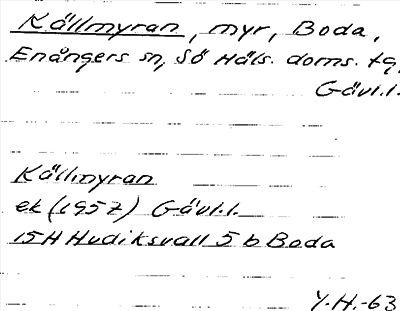 Källmyran, myr, Boda,
Enångers sn, Sö Häls. doms. tg,
Gävl.l.
Källmyran
ek (1957) Gävl.l.
15H Hudiksvall 5 b Boda
Y.H.-63